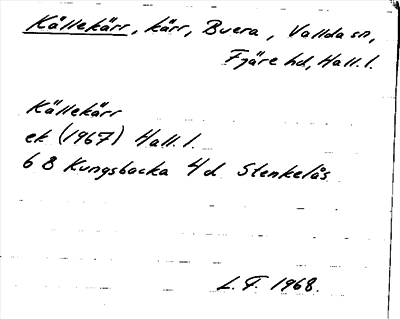 Källekärr, kärr, Buera, Vallda sn,
Fjäre hd, Hall. l.
Källekärr
ek (1967) Hall. l.
6 B Kungsbacka 4 d Stenkelås
L. F. 1968.